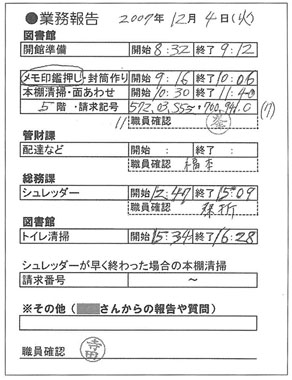 ●業務報告 2007年12月4日(火)
図書館
開館準備 開始 8:32 終了 9:12
メモ印鑑押し・封筒作り 開始 9:16 終了 10:06
本棚清掃・面あわせ 開始 10:30 終了 11:40
5階・請求記号 572.03.S55~700.941.0 (9)
職員確認
管財課
配達など 開始 : 終了 :
職員確認 福本
総務課
シュレッダー 開始 12:47 終了 15:09
職員確認
図書館
トイレ清掃 開始 15:34 終了 16:28
シュレッダーが早く終わった場合の本棚清掃
請求番号 ~
※その他(さんからの報告や質問)
職員確認 寺田